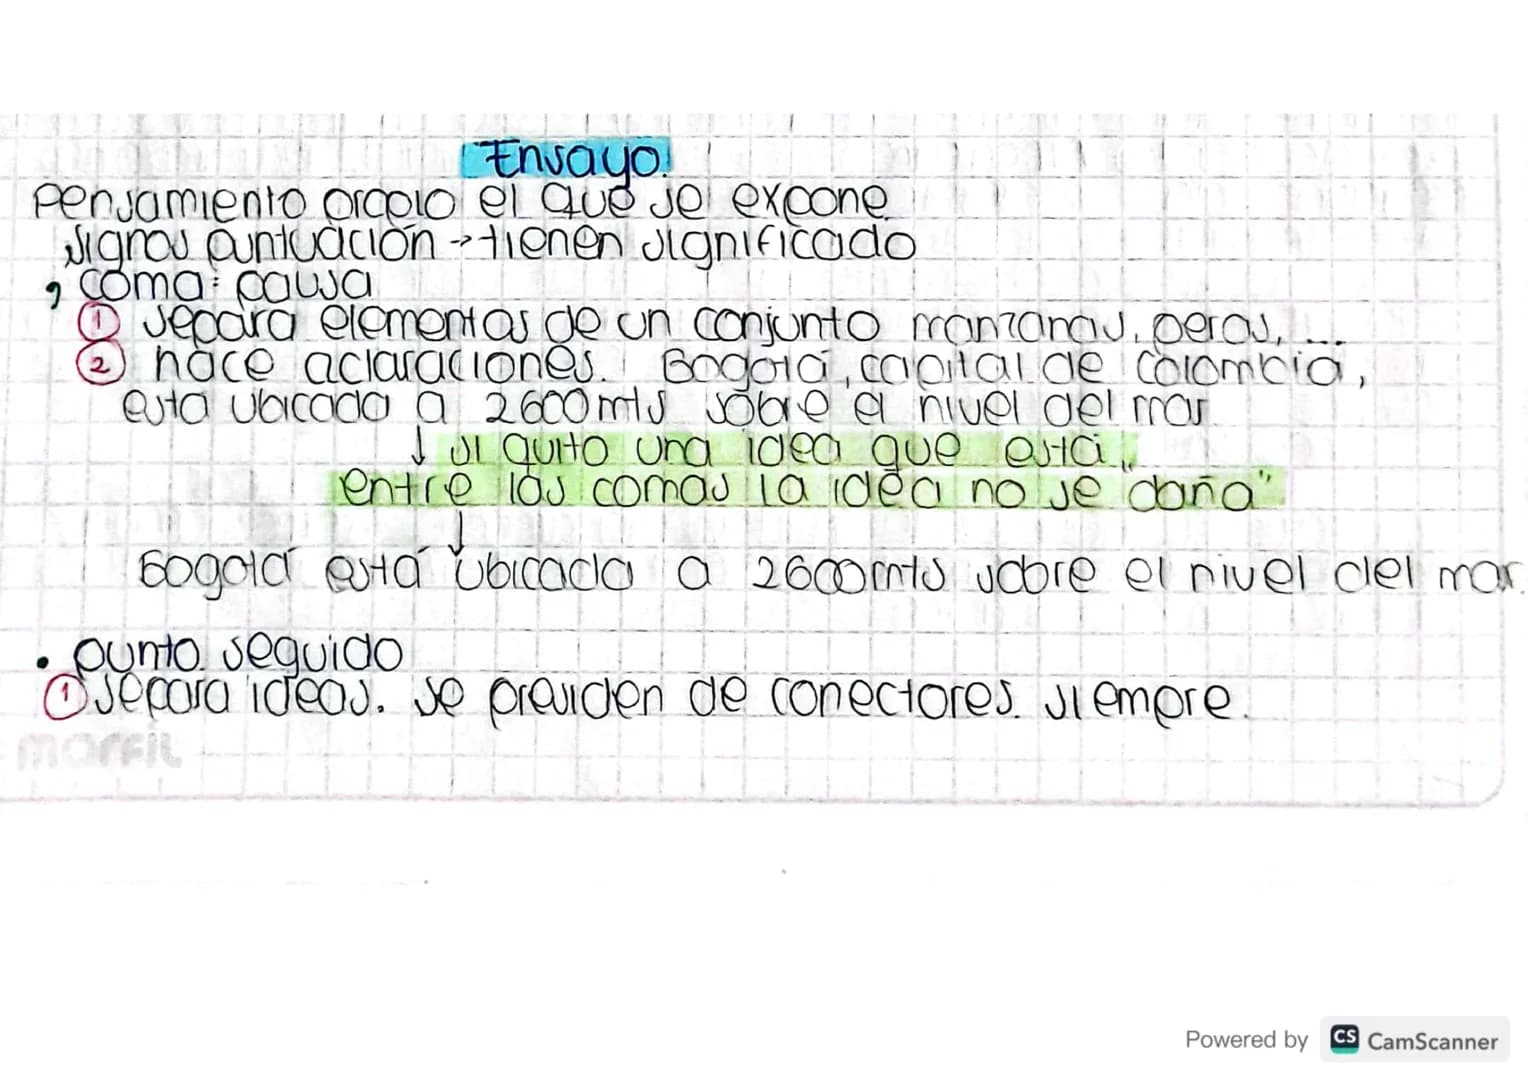 Ensayo.
Pensamiento propio el que se expone
signos puntuación → tienen significado
, coma: pausa
① separa elementos de un conjunto manzanas, peras, ...
② hace aclaraciones. Bogotá, capital de Colombia,
esta ubicada a 2600mts sobre el nivel del mar
↓ si quito una idea que está
entre las comas "la idea no se daña"
↓
Bogotá está ubicada a 2600mts sobre el nivel del mar.
. punto seguido
① separa ideas. se presiden de conectores siempre.
marfil
Powered by CS CamScanner